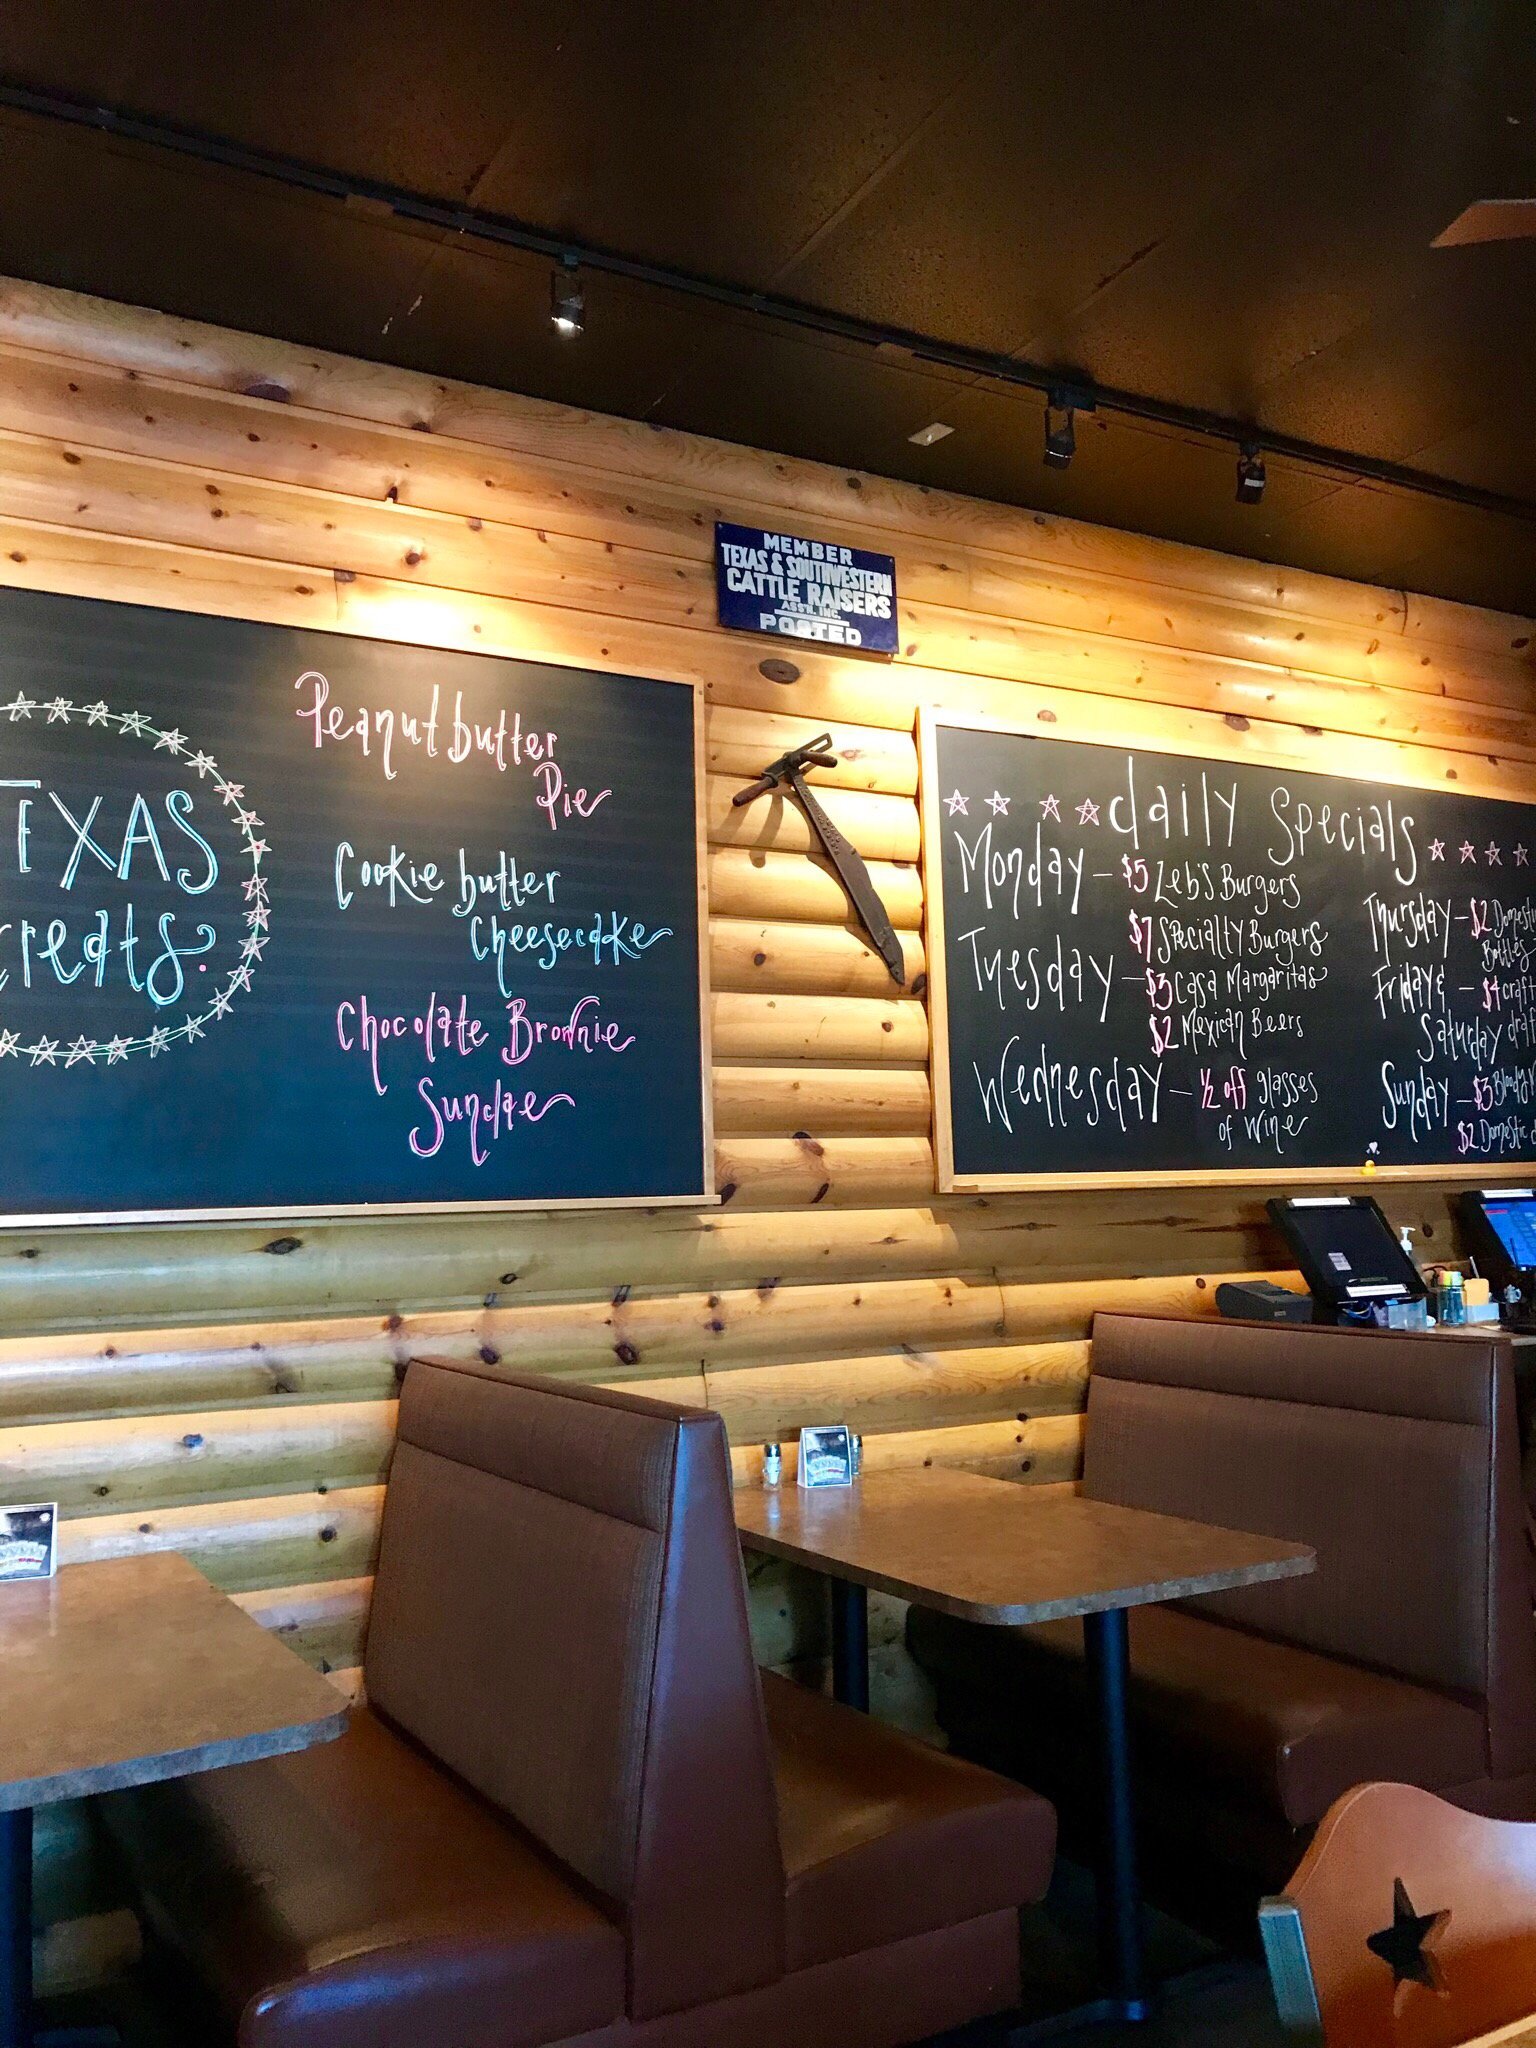 MEMBER
TEXAS & SOUTHWESTERN
CATTLE RAISERS
ASS'N. INC.
POSTED
TEXAS
treats
Peanut butter
Pie
Cookie butter
Cheesecake
Chocolate Brownie
Sundae
daily Specials
Monday - $5 Zeb's Burgers
$7 Specialty Burgers
Tuesday - $3 Casa Margaritas
$2 Mexican Beers
Wednesday - 1/2 off glasses
of wine
Thursday - $2 Domes
Bottles
Friday & - $4 craft
Saturday draf
Sunday - $3 Bloody
$2 Domestic